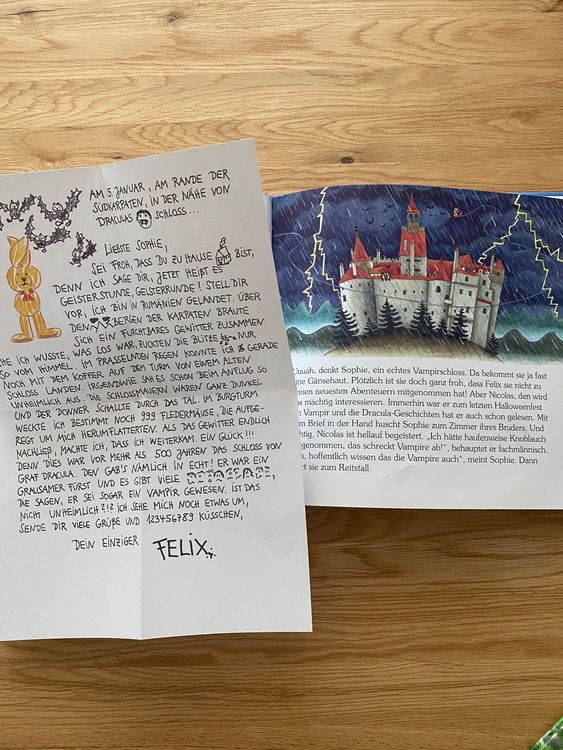 AM 5. JANUAR, AM RANDE DER
SÜDKARPATEN, IN DER NÄHE VON
DRACULAS SCHLOSS...
LIEBSTE SOPHIE,
SEI FROH, DASS DU ZU HAUSE BIST,
DENN ICH SAGE DIR, JETZT HEIßT ES
GEISTERSTUNDE, GEISTERRUNDE! STELL DIR
VOR, ICH BIN IN RUMÄNIEN GELANDET. ÜBER
DEN BERGEN DER KARPATEN BRAUTE
SICH EIN FURCHTBARES GEWITTER ZUSAMMEN.
EHE ICH WUSSTE, WAS LOS WAR, ZUCKTEN DIE BLITZE NUR
SO VOM HIMMEL. IM PRASSELNDEN REGEN KONNTE ICH GERADE
NOCH MIT DEM KOFFER AUF DEM TURM VON EINEM ALTEN
SCHLOSS LANDEN. IRGENDWIE SAH ES SCHON BEIM ANFLUG SO
UNHEIMLICH AUS. DIE SCHLOSSMAUERN WAREN GANZ DUNKEL
UND DER DONNER SCHALLTE DURCH DAS TAL. IM BURGTURM
WECKTE ICH BESTIMMT NOCH 999 FLEDERMÄUSE, DIE AUFGE-
REGT UM MICH HERUMFLATTERTEN. ALS DAS GEWITTER ENDLICH
NACHLIEß, MACHTE ICH, DASS ICH WEITERKAM. EIN GLÜCK!!!
DENN DIES WAR VOR MEHR ALS 500 JAHREN DAS SCHLOSS VON
GRAF DRACULA. DEN GAB'S NÄMLICH IN ECHT! ER WAR EIN
GRAUSAMER FÜRST UND ES GIBT VIELE
DIE SAGEN, ER SEI SOGAR EIN VAMPIR GEWESEN. IST DAS
NICHT UNHEIMLICH?!? ICH SEHE MICH NOCH ETWAS UM,
SENDE DIR VIELE GRÜßE UND 123456789 KÜSSCHEN,
DEIN EINZIGER FELIX
Uuah, denkt Sophie, ein echtes Vampirschloss. Da bekommt sie ja fast
eine Gänsehaut. Plötzlich ist sie doch ganz froh, dass Felix sie nicht zu
seinen neuesten Abenteuern mitgenommen hat! Aber Nicolas, den wird
das mächtig interessieren. Immerhin war er zum letzten Halloweenfest
Vampir und die Dracula-Geschichten hat er auch schon gelesen. Mit
Brief in der Hand huscht Sophie zum Zimmer ihres Bruders. Und
Nicolas ist hellauf begeistert. „Ich hätte haufenweise Knoblauch
genommen, das schreckt Vampire ab!“, behauptet er fachmännisch.
hoffentlich wissen das die Vampire auch“, meint Sophie. Dann
sie zum Reitstall.